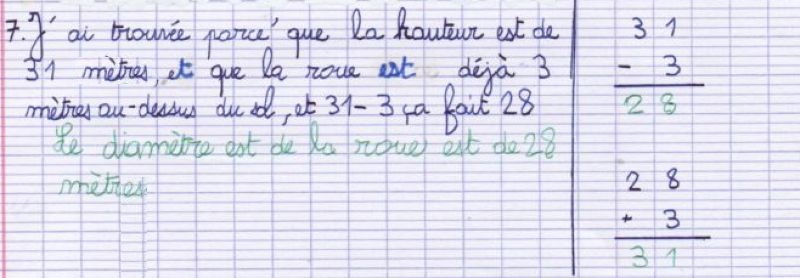 7. J'ai trouvée parce que la hauteur est de
31 mètres, et que la roue est déjà 3
mètres au-dessus du sol, et 31-3 ça fait 28
Le diamètre est de la roue est de 28
mètres
31
- 3
28
28
+ 3
31